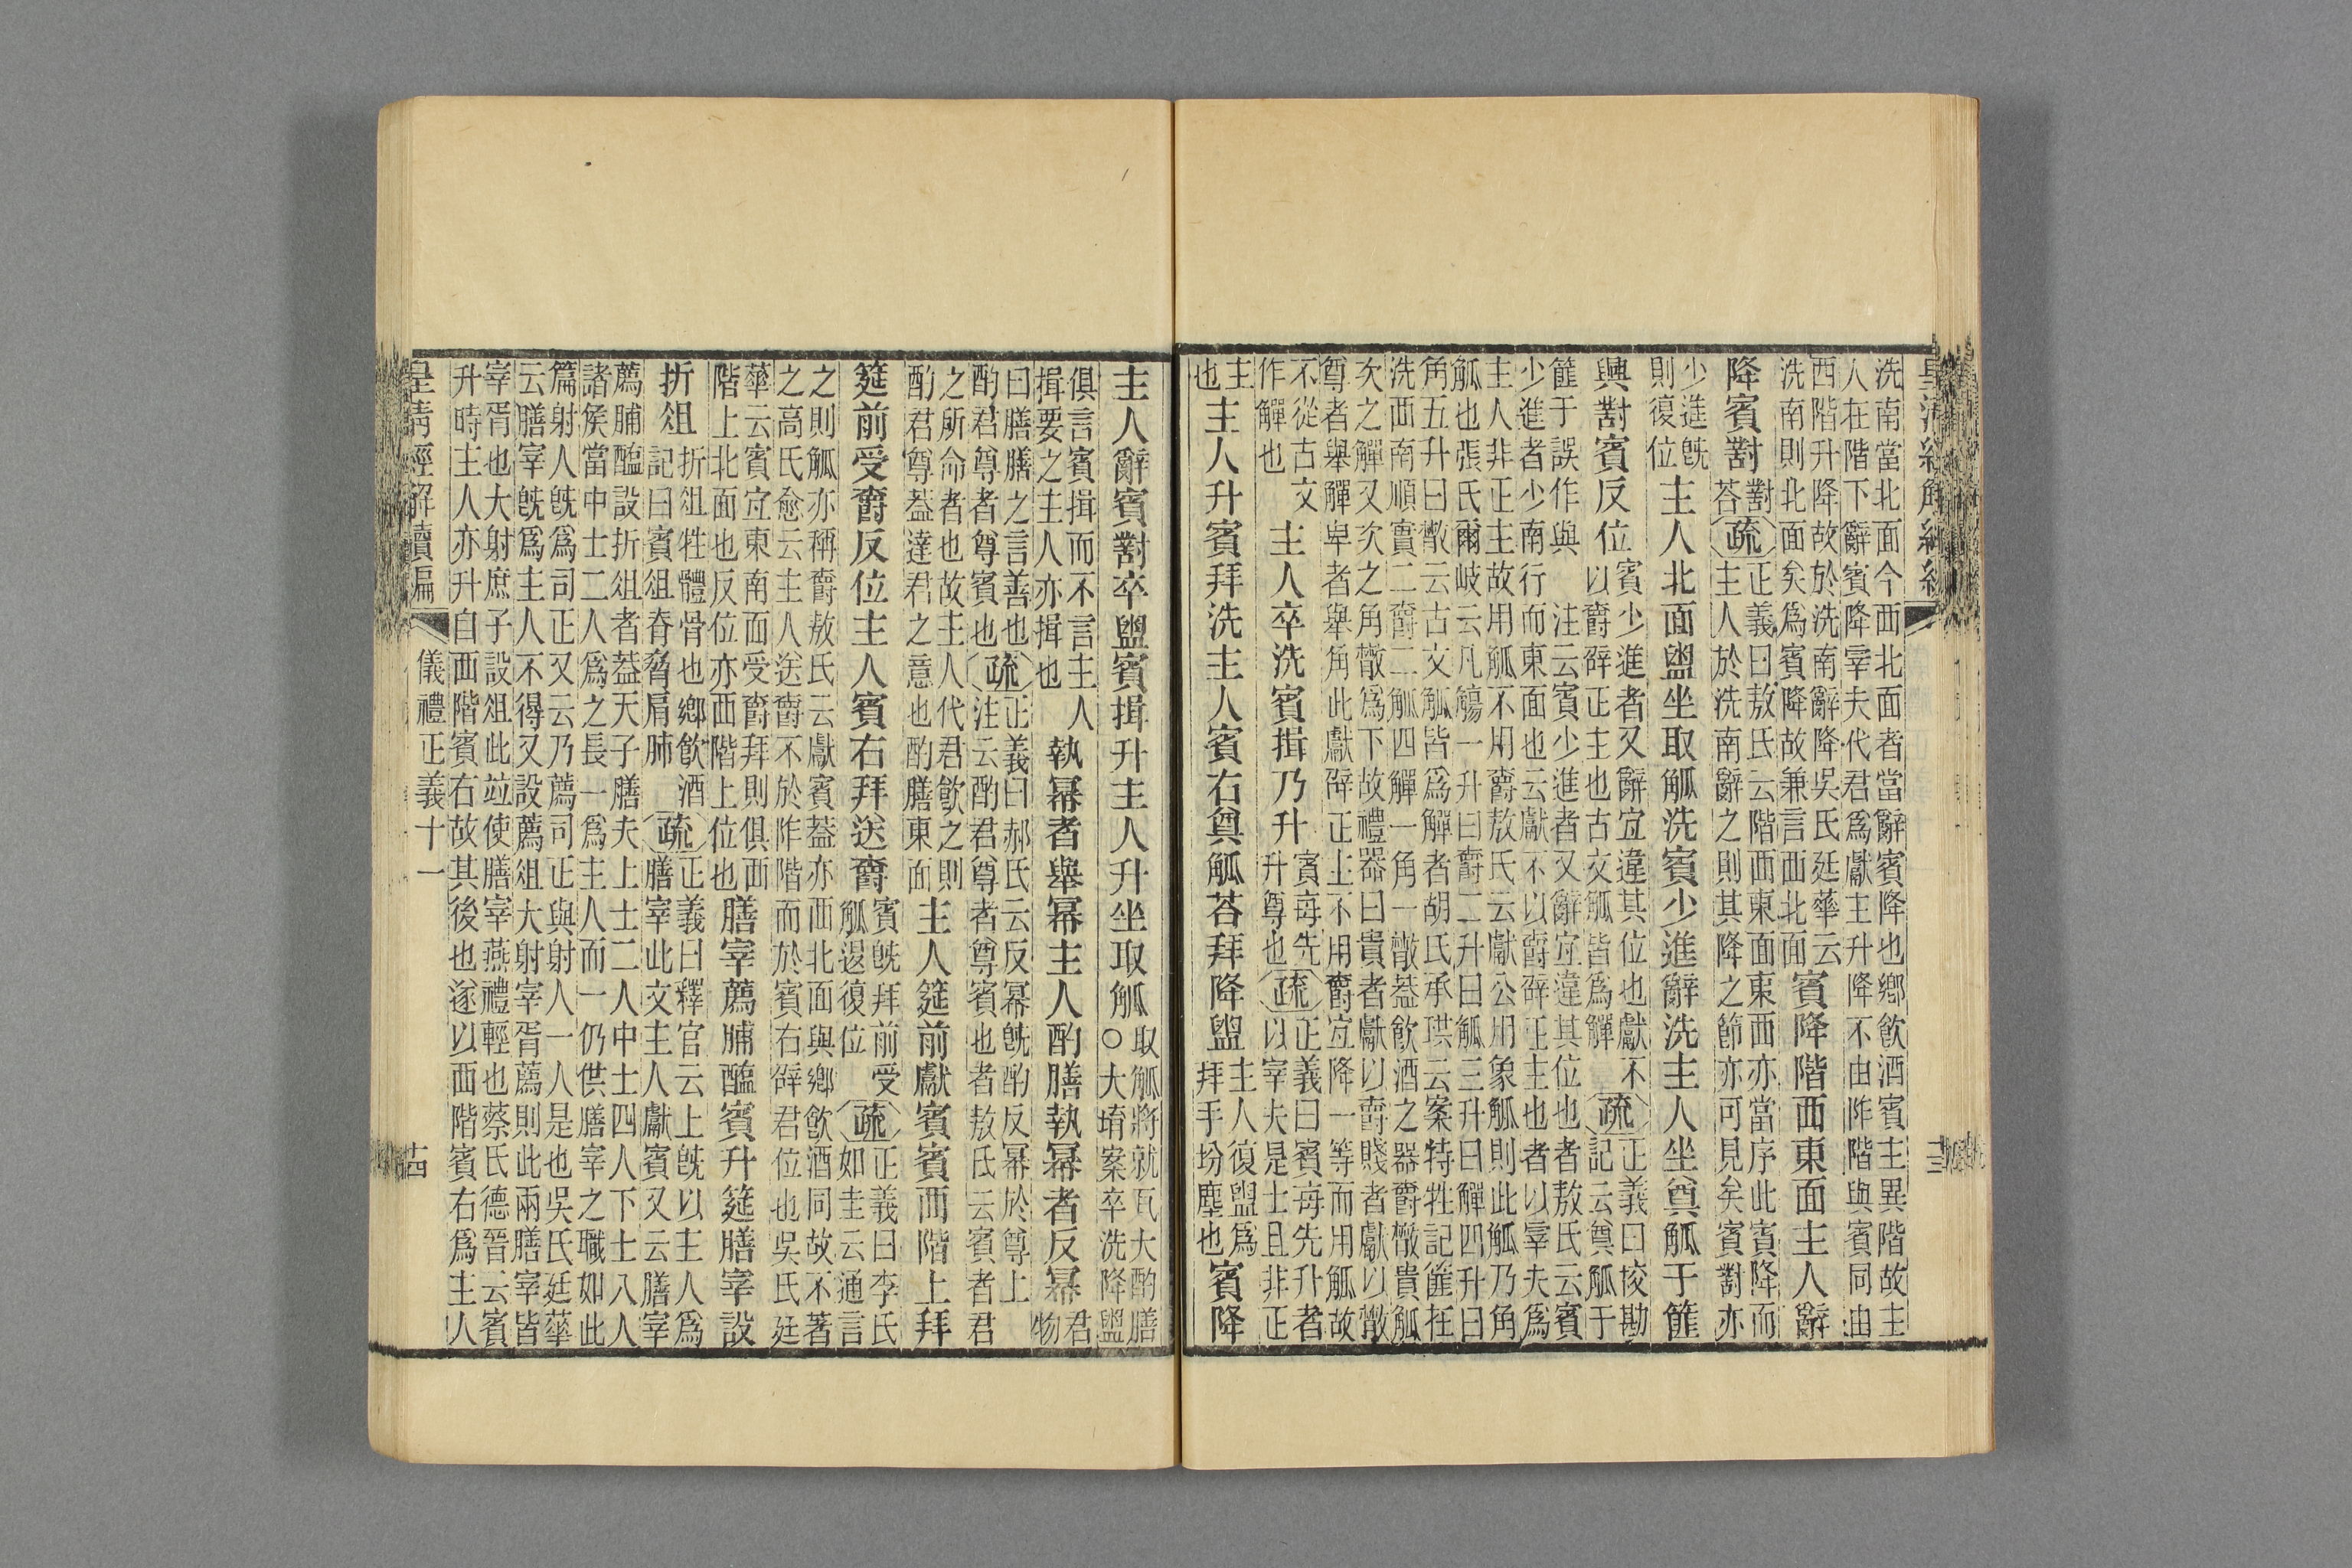 皇清經解續編
洗南當北面今西北面者當辭賓降也鄉飲酒賓主異階故主
人在階下辭賓降宰夫代君為獻主升降不由阼階與賓同由
西階升降故於洗南辭降吳氏廷華云
洗南則北面矣為賓降故兼言西北面
賓降階西東面主人辭
降賓對
對
荅
疏
正義曰敖氏云階西東面東西亦當序此賓降而
主人於洗南辭之則其降之節亦可見矣賓對亦
少進旣
則復位
主人北面盥坐取觚洗賓少進辭洗主人坐奠觚于篚
興對賓反位
賓少進者又辭宜違其位也獻不
以爵辟正主也古文觚皆為觶
疏
正義曰校勘
記云奠觚于
篚于誤作與　注云賓少進者又辭宜違其位也者敖氏云賓
少進者少南行而東面也云獻不以爵辟正主也者以宰夫為
主人非正主故用觚不用爵敖氏云獻公用象觚則此觚乃角
觚也張氏爾岐云凡觴一升曰爵二升曰觚三升曰觶四升曰
角五升曰散云古文觚皆為觶者胡氏承珙云案特牲記篚在
洗西南順實二爵二觚四觶一角一散蓋飲酒之器爵散貴觚
次之觶又次之角散為下故禮器曰貴者獻以爵賤者獻以散
尊者舉觶卑者舉角此獻辟正主不用爵宜降一等而用觚故
不從古文
作觶也
主人卒洗賓揖乃升
賓每先
升尊也
疏
正義曰賓每先升者
以宰夫是士且非正
主
也
主人升賓拜洗主人賓右奠觚荅拜降盥
主人復盥為
拜手坋塵也
賓降
主人辭賓對卒盥賓揖升主人升坐取觚
取觚將就瓦大酌膳
○大堉案卒洗降盥
俱言賓揖而不言主人
揖要之主人亦揖也
執冪者舉冪主人酌膳執冪者反冪
君
物
曰膳膳之言善也
酌君尊者尊賓也
疏
正義曰郝氏云反冪旣酌反冪於尊上
注云酌君尊者尊賓也者敖氏云賓者君
之所命者也故主人代君飲之則
酌君尊蓋達君之意也酌膳東面
主人筵前獻賓賓西階上拜
筵前受爵反位主人賓右拜送爵
賓旣拜前受
觚退復位
疏
正義曰李氏
如圭云通言
之則觚亦稱爵敖氏云獻賓蓋亦西北面與鄉飲酒同故不著
之高氏愈云主人送爵不於阼階而於賓右辟君位也吳氏廷
華云賓宜東南面受爵拜則俱西
階上北面也反位亦西階上位也
膳宰薦脯醢賓升筵膳宰設
折俎
折俎牲體骨也鄉飲酒
記曰賓俎脊脅肩肺
疏
正義曰釋官云上旣以主人為
膳宰此文主人獻賓又云膳宰
薦脯醢設折俎者蓋天子膳夫上士二人中士四人下士八人
諸侯當中士二人為之長一為主人而一仍供膳宰之職如此
篇射人旣為司正又云乃薦司正與射人一人是也吳氏廷華
云膳宰旣為主人不得又設薦俎大射宰胥薦則此兩膳宰皆
宰胥也大射庶子設俎此竝使膳宰燕禮輕也蔡氏德晉云賓
升時主人亦升自西階賓右故其後也遂以西階賓右為主人
皇清經解續編
儀禮正義十一
十四